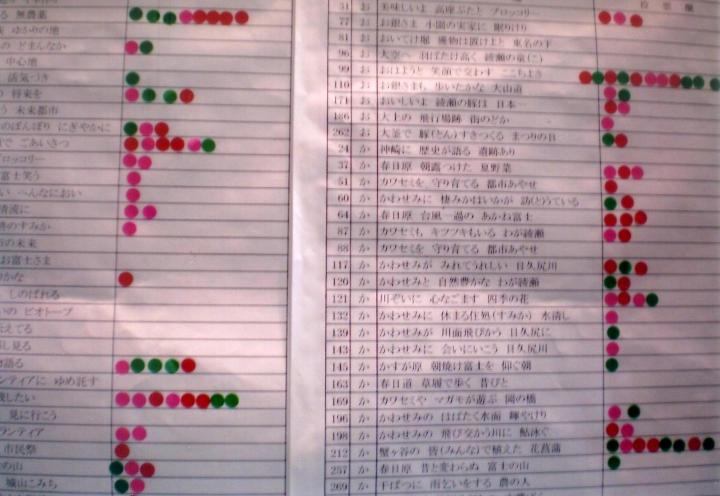 る 無農薬
ゆかりの地
の どまんなか
中心地
活気づき
将来を
う 未来都市
のぼんぼり にぎやかに
で ごあいさつ
ブロッコリー
富士笑う
い へんなにおい
清流に
のすみか
の未来
お富士さま
かな
しのばれる
いの ビオトープ
伝えてる
し見る
語る
ンティアに ゆめ託す
残したい
見に行こう
ランティア
市民祭
の山
城山こみち
投票欄
51 お 美味しいよ 高座ぶたと ブロッコリー
77 お お銀さま 小園の実家に 眠りけり
81 お おいてけ堀 獲物は置けよと 東名の下
96 お 大空へ 羽ばたけ高く 綾瀬の童(こ)
99 お おはようと 笑顔で交わす ここちよさ
110 お お銀さまも 歩いたかな 大山道
171 お おいしいよ 綾瀬の豚は 日本一
186 お 大上の 飛行場跡 街のどか
262 お 大釜で 豚(とん)すきつくる まつりの日
24 か 神崎に 歴史が語る 遺跡あり
37 か 春日原 朝露つけた 夏野菜
51 か カワセミを 守り育てる 都市あやせ
60 か かわせみに 棲みかはいかが 訪(とう)ている
64 か 春日原 台風一過の あかね富士
87 か カワセミも キツツキもいる わが綾瀬
88 か カワセミを 守り育てる 都市あやせ
117 か かわせみが みれてうれしい 目久尻川
120 か かわせみと 自然豊かな わが綾瀬
121 か 川ぞいに 心なごます 四季の花
132 か かわせみに 休まる住処(すみか) 水清し
139 か かわせみが 川面飛びかう 目久尻に
143 か かわせみに 会いにいこう 目久尻川
145 か かすが原 朝焼け富士を 仰ぐ朝
163 か 春日道 草履で歩く 昔びと
169 か カワセミや マガモが遊ぶ 岡の橋
196 か かわせみの はばたく水面 輝やけり
198 か かわせみの 飛び交かう川に 鮎泳ぐ
212 か 蟹ヶ谷の 皆(みんな)で植えた 花菖蒲
257 か 春日原 昔と変わらぬ 富士の山
269 か 干ばつに 雨乞いをする 農の人